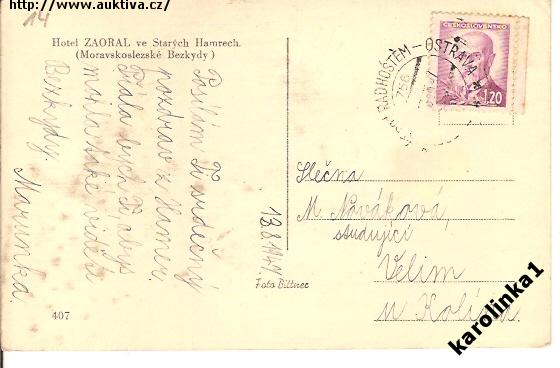 http://www.auktiva.cz/
14
Hotel ZAORAL ve Starých Hamrech.
(Moravskoslezské Bezkydy)
Posílám Ti srdečný
pozdrav z Hamer.
Přála bych Ti abys
mohla také vidět
Bezkydy.
Marunka.
13.8.1947.
Foto Bittner
407
ČESKOSLOVENSKO
1.20
RADHOŠTĚM - OSTRAVA
Slečna
M. Nováková,
studující
Velim
u Kolína
karolinka1